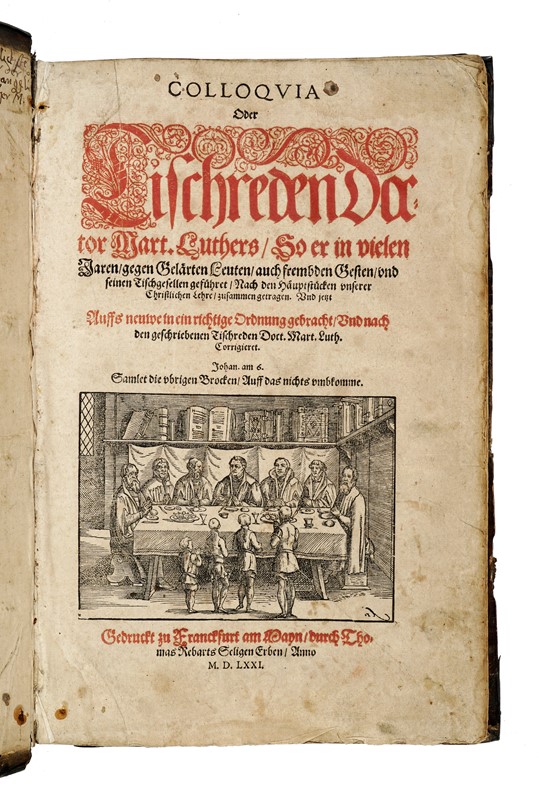 COLLOQVIA
Oder
Tischreden Doc-
tor Mart. Luthers/ So er in vielen
Jaren/ gegen Gelärten Leuten/ auch frembden Gesten/ vnd
seinen Tischgesellen geführet/ Nach den Häuptstücken vnserer
Christlichen Lehre/ zusammen getragen. Vnd jetzt
Auffs neuwe in ein richtige Ordnung gebracht/ Vnd nach
den geschriebenen Tischreden Doct. Mart. Luth.
Corrigieret.
Johan. am 6.
Samlet die vbrigen Brocken/ Auff das nichts vmbkomme.
Gedruckt zu Franckfurt am Mayn/ durch Tho-
mas Rebarts Seligen Erben/ Anno
M. D. LXXI.